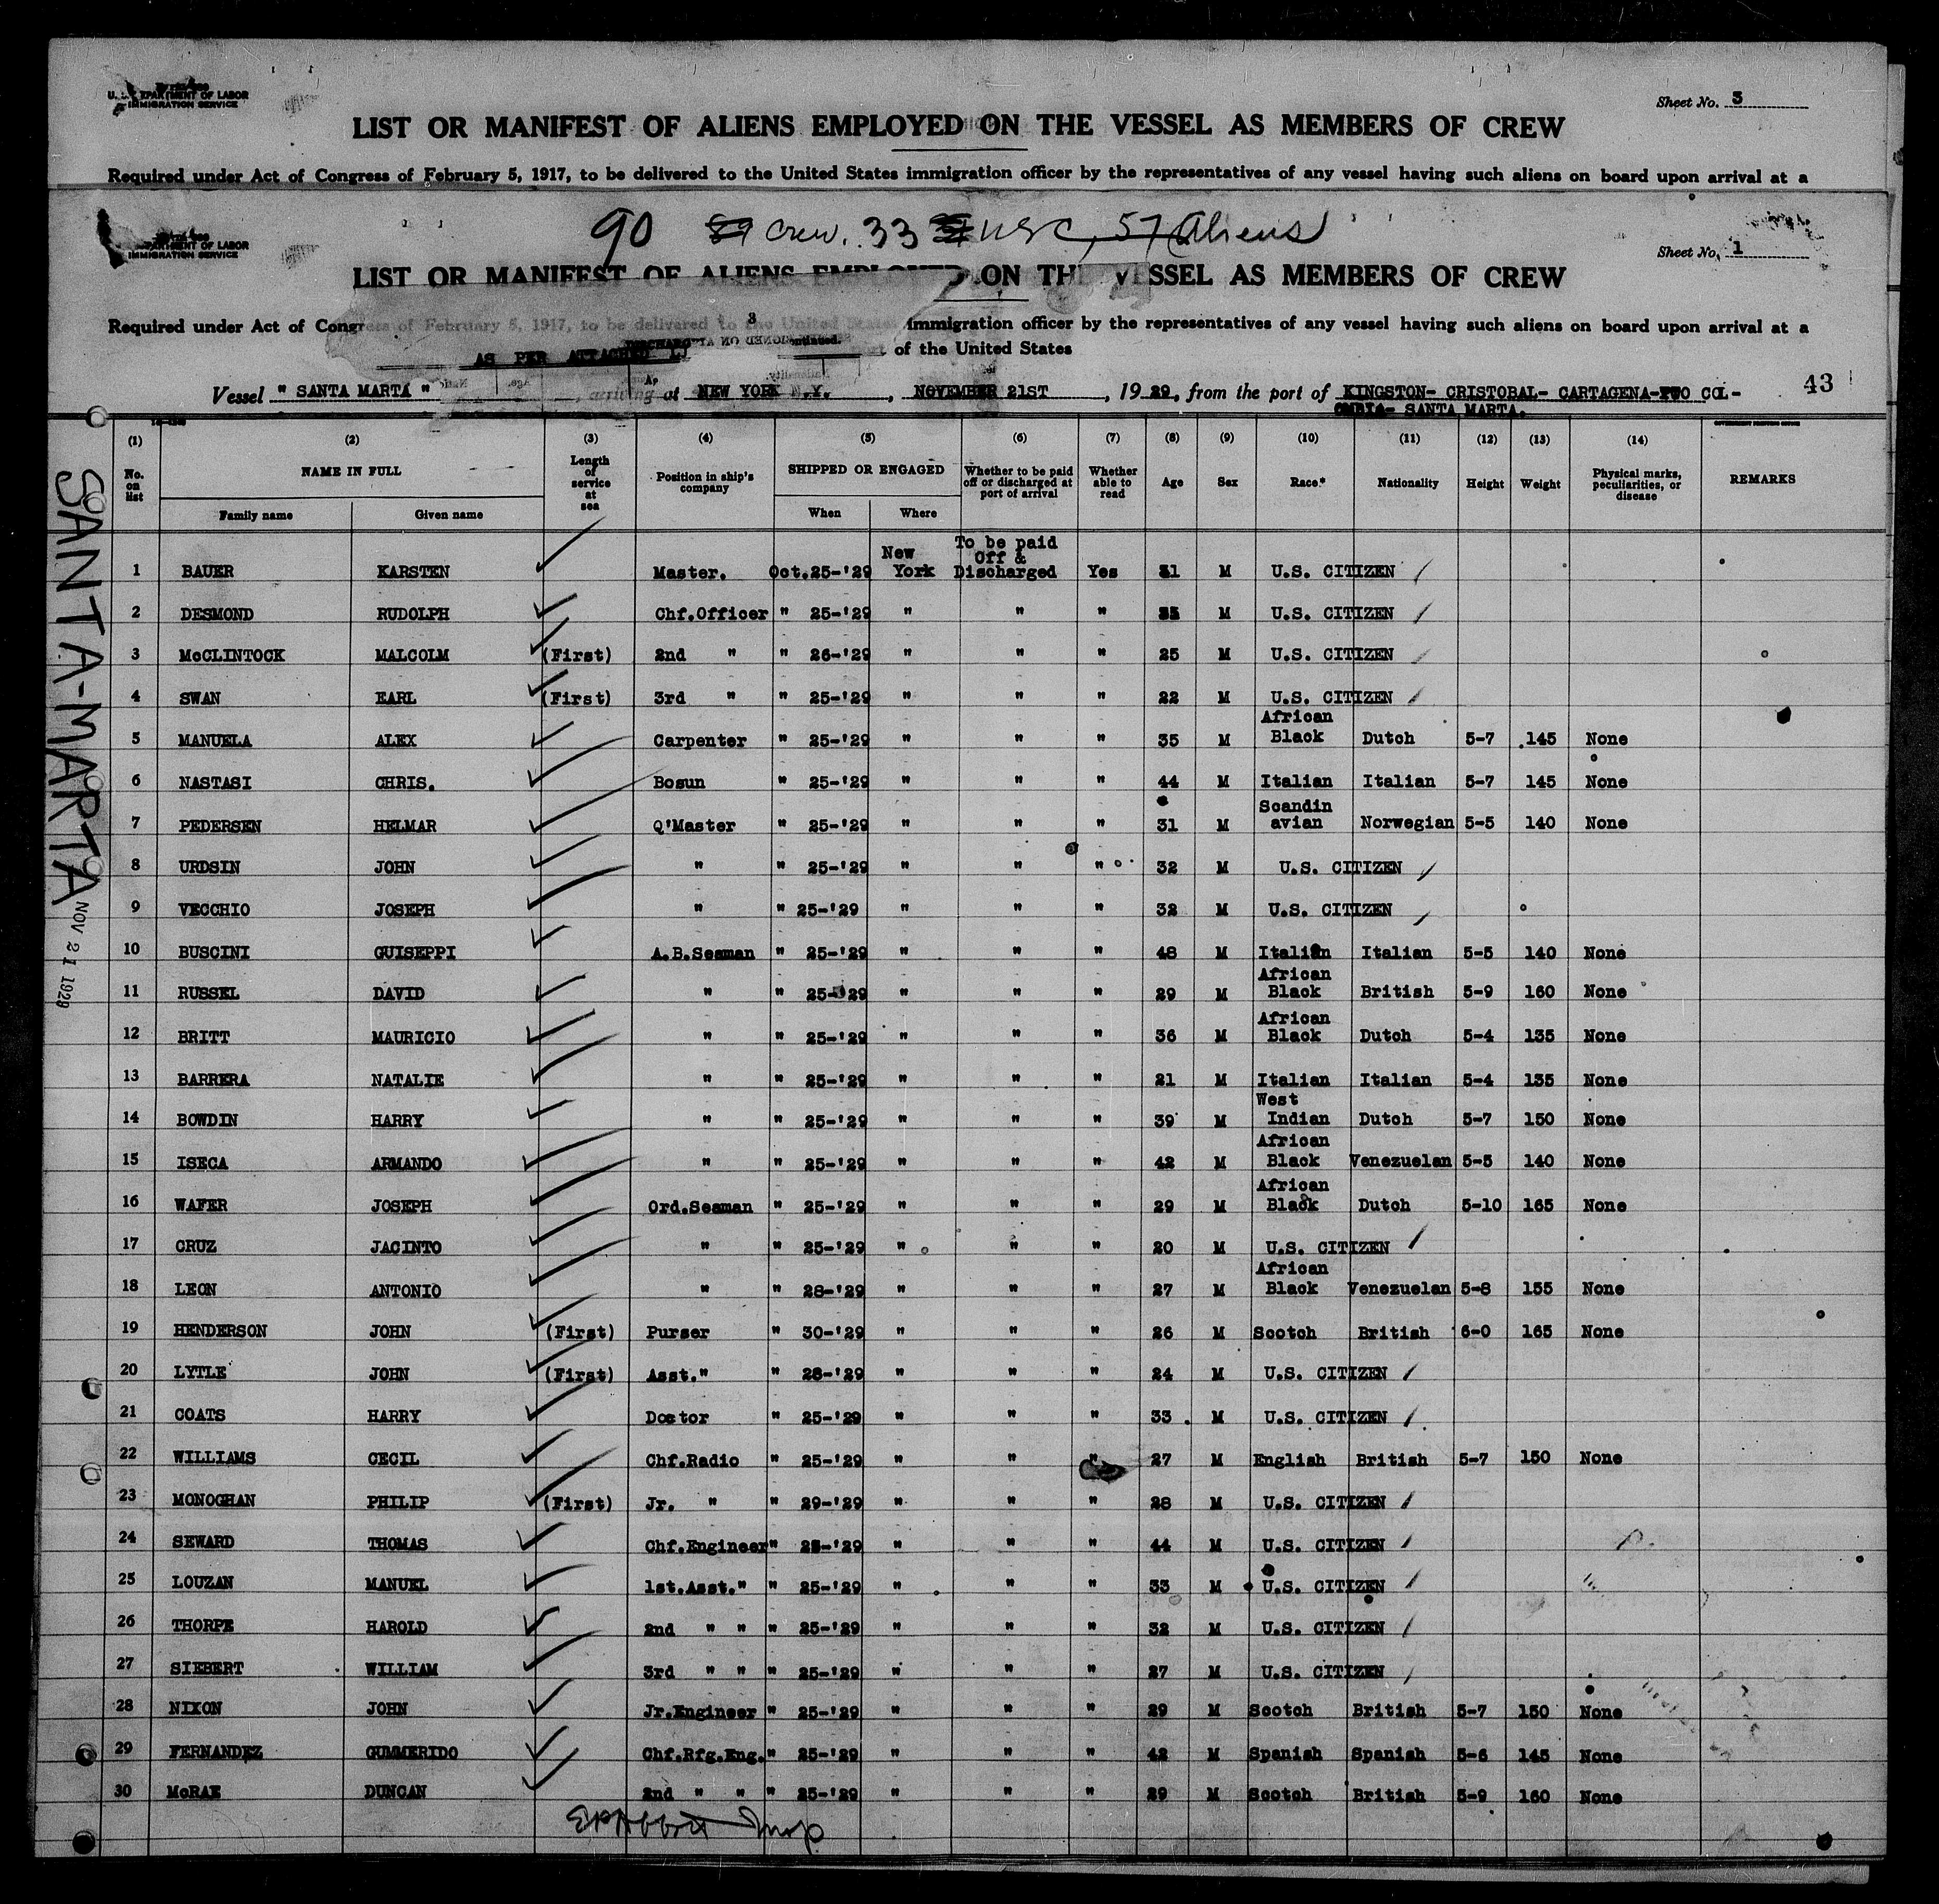 U. S. DEPARTMENT OF LABOR
IMMIGRATION SERVICE
Sheet No. 3
LIST OR MANIFEST OF ALIENS EMPLOYED ON THE VESSEL AS MEMBERS OF CREW
Required under Act of Congress of February 5, 1917, to be delivered to the United States immigration officer by the representatives of any vessel having such aliens on board upon arrival at a
90 89 Crew. 33 USC, 57 Aliens
DEPARTMENT OF LABOR
IMMIGRATION SERVICE
Sheet No. 1
LIST OR MANIFEST OF ALIENS EMPLOYED ON THE VESSEL AS MEMBERS OF CREW
Required under Act of Congress of February 5, 1917, to be delivered to the United States immigration officer by the representatives of any vessel having such aliens on board upon arrival at a
3
AS PER ATTACHED
of the United States
Vessel " SANTA MARTA " , arriving at NEW YORK N.Y. , NOVEMBER 21ST , 19 29, from the port of KINGSTON- CRISTOBAL- CARTAGENA- COL-
OMBIA- SANTA MARTA.
43
SANTA-MARTA
NOV 21 1929
(1) (2) (3) (4) (5) (6) (7) (8) (9) (10) (11) (12) (13) (14)
No. on list NAME IN FULL Length of service at sea Position in ship's company SHIPPED OR ENGAGED Whether to be paid off or discharged at port of arrival Whether able to read Age Sex Race.* Nationality Height Weight Physical marks, peculiarities, or disease REMARKS
Family name Given name When Where
1 BAUER KARSTEN Master. Oct.25-'29 New York To be paid Off & Discharged Yes 31 M U.S. CITIZEN
2 DESMOND RUDOLPH Chf.Officer " 25-'29 " " " M U.S. CITIZEN
3 McCLINTOCK MALCOLM (First) 2nd " " 26-'29 " " " 25 M U.S. CITIZEN
4 SWAN EARL (First) 3rd " " 25-'29 " " " 22 M U.S. CITIZEN
5 MANUELA ALEX Carpenter " 25-'29 " " " 35 M African Black Dutch 5-7 145 None
6 NASTASI CHRIS. Bosun " 25-'29 " " " 44 M Italian Italian 5-7 145 None
7 PEDERSEN HELMAR Q'Master " 25-'29 " " " 31 M Scandin avian Norwegian 5-5 140 None
8 URDSIN JOHN " " 25-'29 " " " 32 M U.S. CITIZEN
9 VECCHIO JOSEPH " " 25-'29 " " " 32 M U.S. CITIZEN
10 BUSCINI GUISEPPI A.B.Seaman " 25-'29 " " " 48 M Italian Italian 5-5 140 None
11 RUSSEL DAVID " " 25-'29 " " " 29 M African Black British 5-9 160 None
12 BRITT MAURICIO " " 25-'29 " " " 36 M African Black Dutch 5-4 135 None
13 BARRERA NATALIE " " 25-'29 " " " 21 M Italian Italian 5-4 135 None
14 BOWDIN HARRY " " 25-'29 " " " 39 M West Indian Dutch 5-7 150 None
15 ISECA ARMANDO " " 25-'29 " " " 42 M African Black Venezuelan 5-5 140 None
16 WAFER JOSEPH Ord.Seaman " 25-'29 " " " 29 M African Black Dutch 5-10 165 None
17 CRUZ JACINTO " " 25-'29 " " " 20 M U.S. CITIZEN
18 LEON ANTONIO " " 28-'29 " " " 27 M African Black Venezuelan 5-8 155 None
19 HENDERSON JOHN (First) Purser " 30-'29 " " " 26 M Scotch British 6-0 165 None
20 LYTLE JOHN (First) Asst." " 28-'29 " " " 24 M U.S. CITIZEN
21 COATS HARRY Doctor " 25-'29 " " " 33 M U.S. CITIZEN
22 WILLIAMS CECIL Chf.Radio " 25-'29 " " " 27 M English British 5-7 150 None
23 MONOGHAN PHILIP (First) Jr. " " 29-'29 " " " 28 M U.S. CITIZEN
24 SEWARD THOMAS Chf.Engineer " 25-'29 " " " 44 M U.S. CITIZEN
25 LOUZAN MANUEL 1st.Asst." " 25-'29 " " " 33 M U.S. CITIZEN
26 THORPE HAROLD 2nd " " " 25-'29 " " " 32 M U.S. CITIZEN
27 SIEBERT WILLIAM 3rd " " " 25-'29 " " " 27 M U.S. CITIZEN
28 NIXON JOHN Jr.Engineer " 25-'29 " " " 29 M Scotch British 5-7 150 None
29 FERNANDEZ GUMMERIDO Chf.Rfg.Eng. " 25-'29 " " " 42 M Spanish Spanish 5-6 145 None
30 McRAE DUNCAN 2nd " " " 25-'29 " " " 29 M Scotch British 5-9 160 None